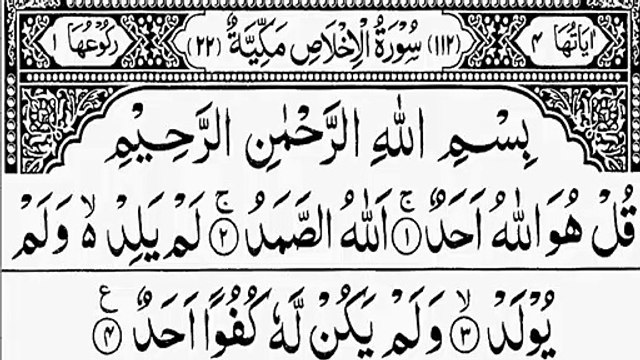 اٰیَاتُهَا ۴ (۱۱۲) سُوْرَةُ الْاِخْلَاصِ مَكِّیَّةٌ (۲۲) رُكُوْعُهَا ۱
بِسْمِ اللّٰهِ الرَّحْمٰنِ الرَّحِیْمِ
قُلْ هُوَ اللّٰهُ اَحَدٌ ۚ﴿۱﴾ اَللّٰهُ الصَّمَدُ ۚ﴿۲﴾ لَمْ یَلِدْ ۙ۬ وَ لَمْ
یُوْلَدْ ۙ﴿۳﴾ وَ لَمْ یَكُنْ لَّهٗ كُفُوًا اَحَدٌ ﴿۴﴾ ع